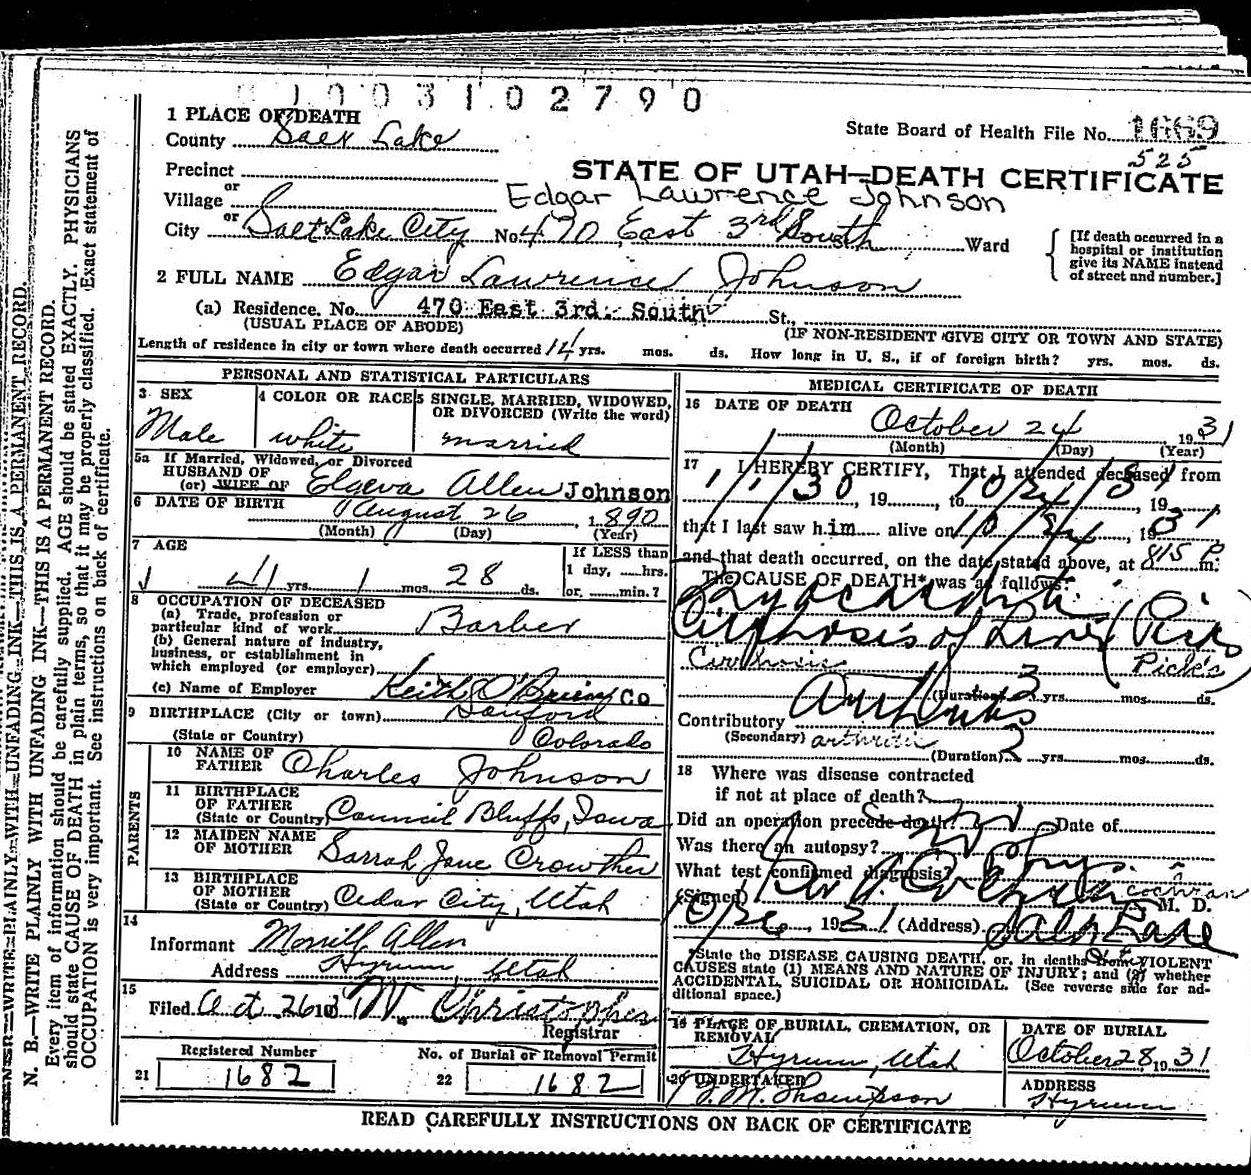 1003102790
1 PLACE OF DEATH
County Salt Lake
State Board of Health File No. 1669
525
Precinct
STATE OF UTAH—DEATH CERTIFICATE
or
Village
Edgar Lawrence Johnson
or
City Salt Lake City No. 470 East 3rd South Ward
[If death occurred in a
hospital or institution
give its NAME instead
of street and number.]
2 FULL NAME Edgar Lawrence Johnson
(a) Residence. No. 470 East 3rd. South St.,
(USUAL PLACE OF ABODE) (IF NON-RESIDENT GIVE CITY OR TOWN AND STATE)
Length of residence in city or town where death occurred 14 yrs. mos. ds. How long in U. S., if of foreign birth? yrs. mos. ds.
PERSONAL AND STATISTICAL PARTICULARS
3 SEX
Male
4 COLOR OR RACE
white
5 SINGLE, MARRIED, WIDOWED,
OR DIVORCED (Write the word)
married
5a If Married, Widowed, or Divorced
HUSBAND OF
(or) WIFE OF Allen Johnson
6 DATE OF BIRTH August 26, 1890
(Month) (Day) (Year)
7 AGE
41 yrs. 1 mos. 28 ds.
If LESS than
1 day, ......hrs.
or, ......min.?
8 OCCUPATION OF DECEASED
(a) Trade, profession or
particular kind of work Barber
(b) General nature of industry,
business, or establishment in
which employed (or employer)
(c) Name of Employer Keith O'Brien Co
9 BIRTHPLACE (City or town) Sanford
(State or Country) Colorado
PARENTS
10 NAME OF
FATHER Charles Johnson
11 BIRTHPLACE
OF FATHER
(State or Country) Council Bluffs, Iowa
12 MAIDEN NAME
OF MOTHER Sarrah Jane Crowther
13 BIRTHPLACE
OF MOTHER
(State or Country) Cedar City, Utah
14
Informant Merrill Allen
Address Hyrum, Utah
15
Filed Oct 26 Christopher
Registrar
Registered Number
21 1682
No. of Burial or Removal Permit
22 1682
MEDICAL CERTIFICATE OF DEATH
16 DATE OF DEATH
October 24, 1931
(Month) (Day) (Year)
17 I HEREBY CERTIFY, That I attended deceased from
1/1/30, 19 , to 10/24/31, 19
that I last saw him alive on 10/24, 1931
and that death occurred, on the date stated above, at 815 P m.
The CAUSE OF DEATH* was as follows:
Myocarditis
Cirrhosis of Liver (Pick's)
Cirrhosis Pick's
(Duration) 3 yrs. mos. ds.
Contributory Arthritis
(Secondary) arthritis
(Duration) 2 yrs. mos. ds.
18 Where was disease contracted
if not at place of death?
Did an operation precede death? Date of
Was there an autopsy?
What test confirmed diagnosis?
(Signed) Cochran M. D.
10/26, 1931 (Address) Salt Lake
*State the DISEASE CAUSING DEATH, or, in deaths from VIOLENT
CAUSES state (1) MEANS AND NATURE OF INJURY; and (2) whether
ACCIDENTAL, SUICIDAL OR HOMICIDAL. (See reverse side for ad-
ditional space.)
19 PLACE OF BURIAL, CREMATION, OR
REMOVAL
Hyrum, Utah
DATE OF BURIAL
October 28, 1931
20 UNDERTAKER
J. M. Thompson
ADDRESS
Hyrum
READ CAREFULLY INSTRUCTIONS ON BACK OF CERTIFICATE
WRITE PLAINLY WITH UNFADING INK—THIS IS A PERMANENT RECORD.
N. B.—WRITE PLAINLY WITH UNFADING INK—THIS IS A PERMANENT RECORD.
Every item of information should be carefully supplied. AGE should be stated EXACTLY. PHYSICIANS
should state CAUSE OF DEATH in plain terms, so that it may be properly classified. Exact statement of
OCCUPATION is very important. See instructions on back of certificate.